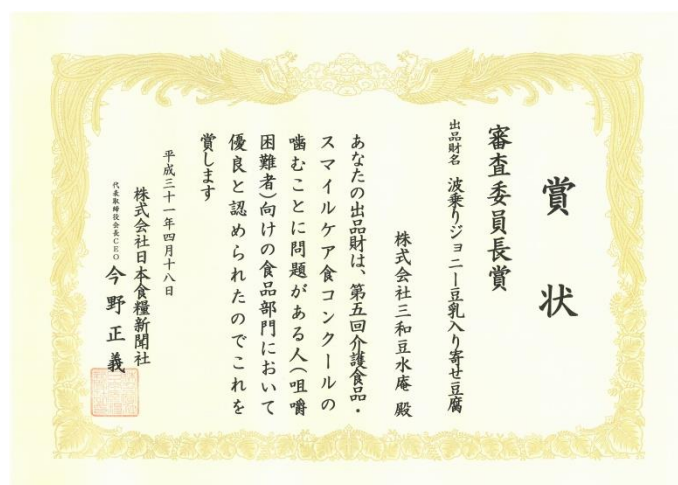 賞状
審査委員長賞
出品財名 波乗りジョニー豆乳入り寄せ豆腐
株式会社三和豆水庵 殿
あなたの出品財は、第五回介護食品・
スマイルケア食コンクールの
噛むことに問題がある人(咀嚼
困難者)向けの食品部門において
優良と認められたのでこれを
賞します
平成三十一年四月十八日
株式会社日本食糧新聞社
代表取締役会長CEO 今野正義